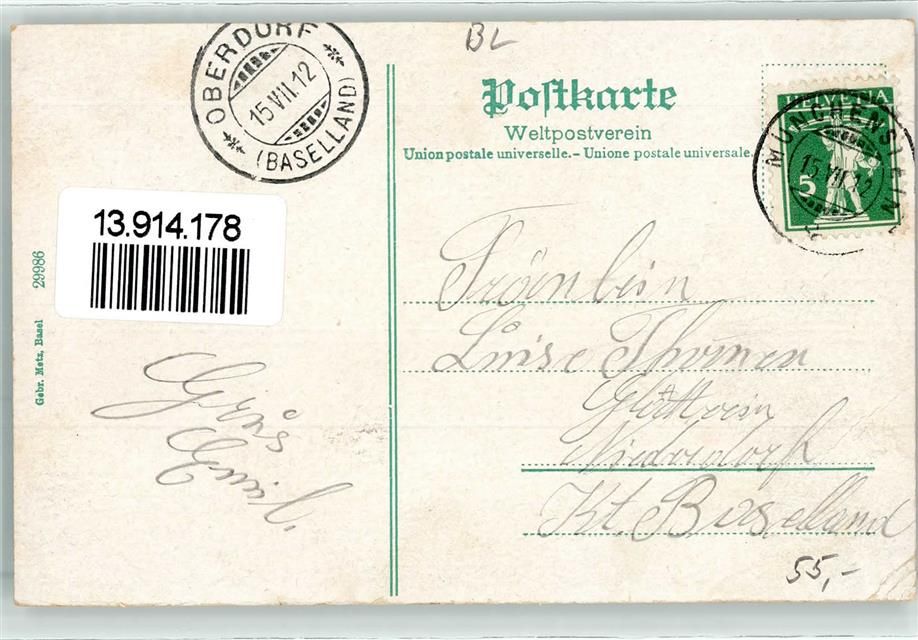 BL
OBERDORF
15.VII.12
(BASELLAND)
Postkarte
Weltpostverein
Union postale universelle. - Unione postale universale.
HELVETIA
5
MÜNCHENSTEIN
15.VII.12
13.914.178
Gebr. Metz, Basel 29986
Fröenlein
Luise Thommen
Glätterin
Niederdorf
Kt. Baselland
Grüs
Emil.
55,-